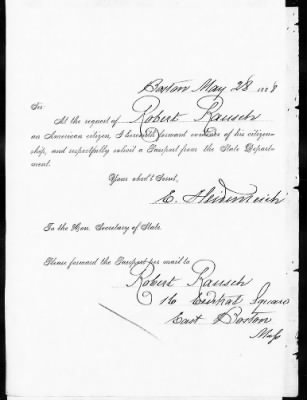 Boston May 28 188
Sir:
At the request of Robert Rausch
an American citizen, I herewith forward evidence of his citizen-
ship, and respectfully solicit a Passport from the State Depart-
ment.
Your obed't Serv't,
E. Heidenreich
To the Hon. Secretary of State.
Please forward the Passport per mail to
Robert Rausch
16 Central Square
East Boston
Mass